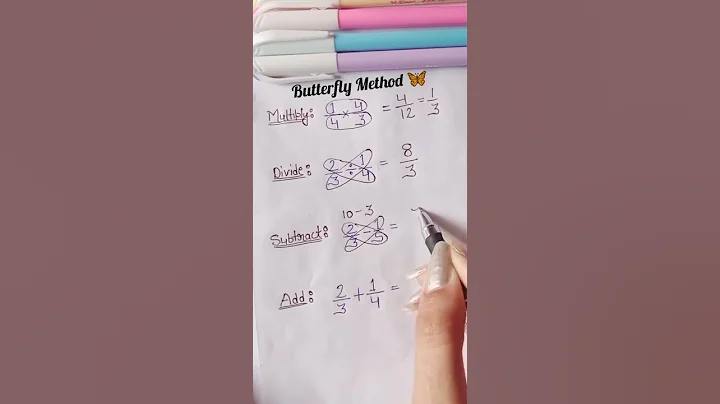 Butterfly Method 🦋
Multibly: 1/4 × 4/3 = 4/12 = 1/3
Divide: 2/3 ÷ 1/4 = 8/3
10-3
Subtract: 2/3 - 1/5 =
Add: 2/3 + 1/4 =